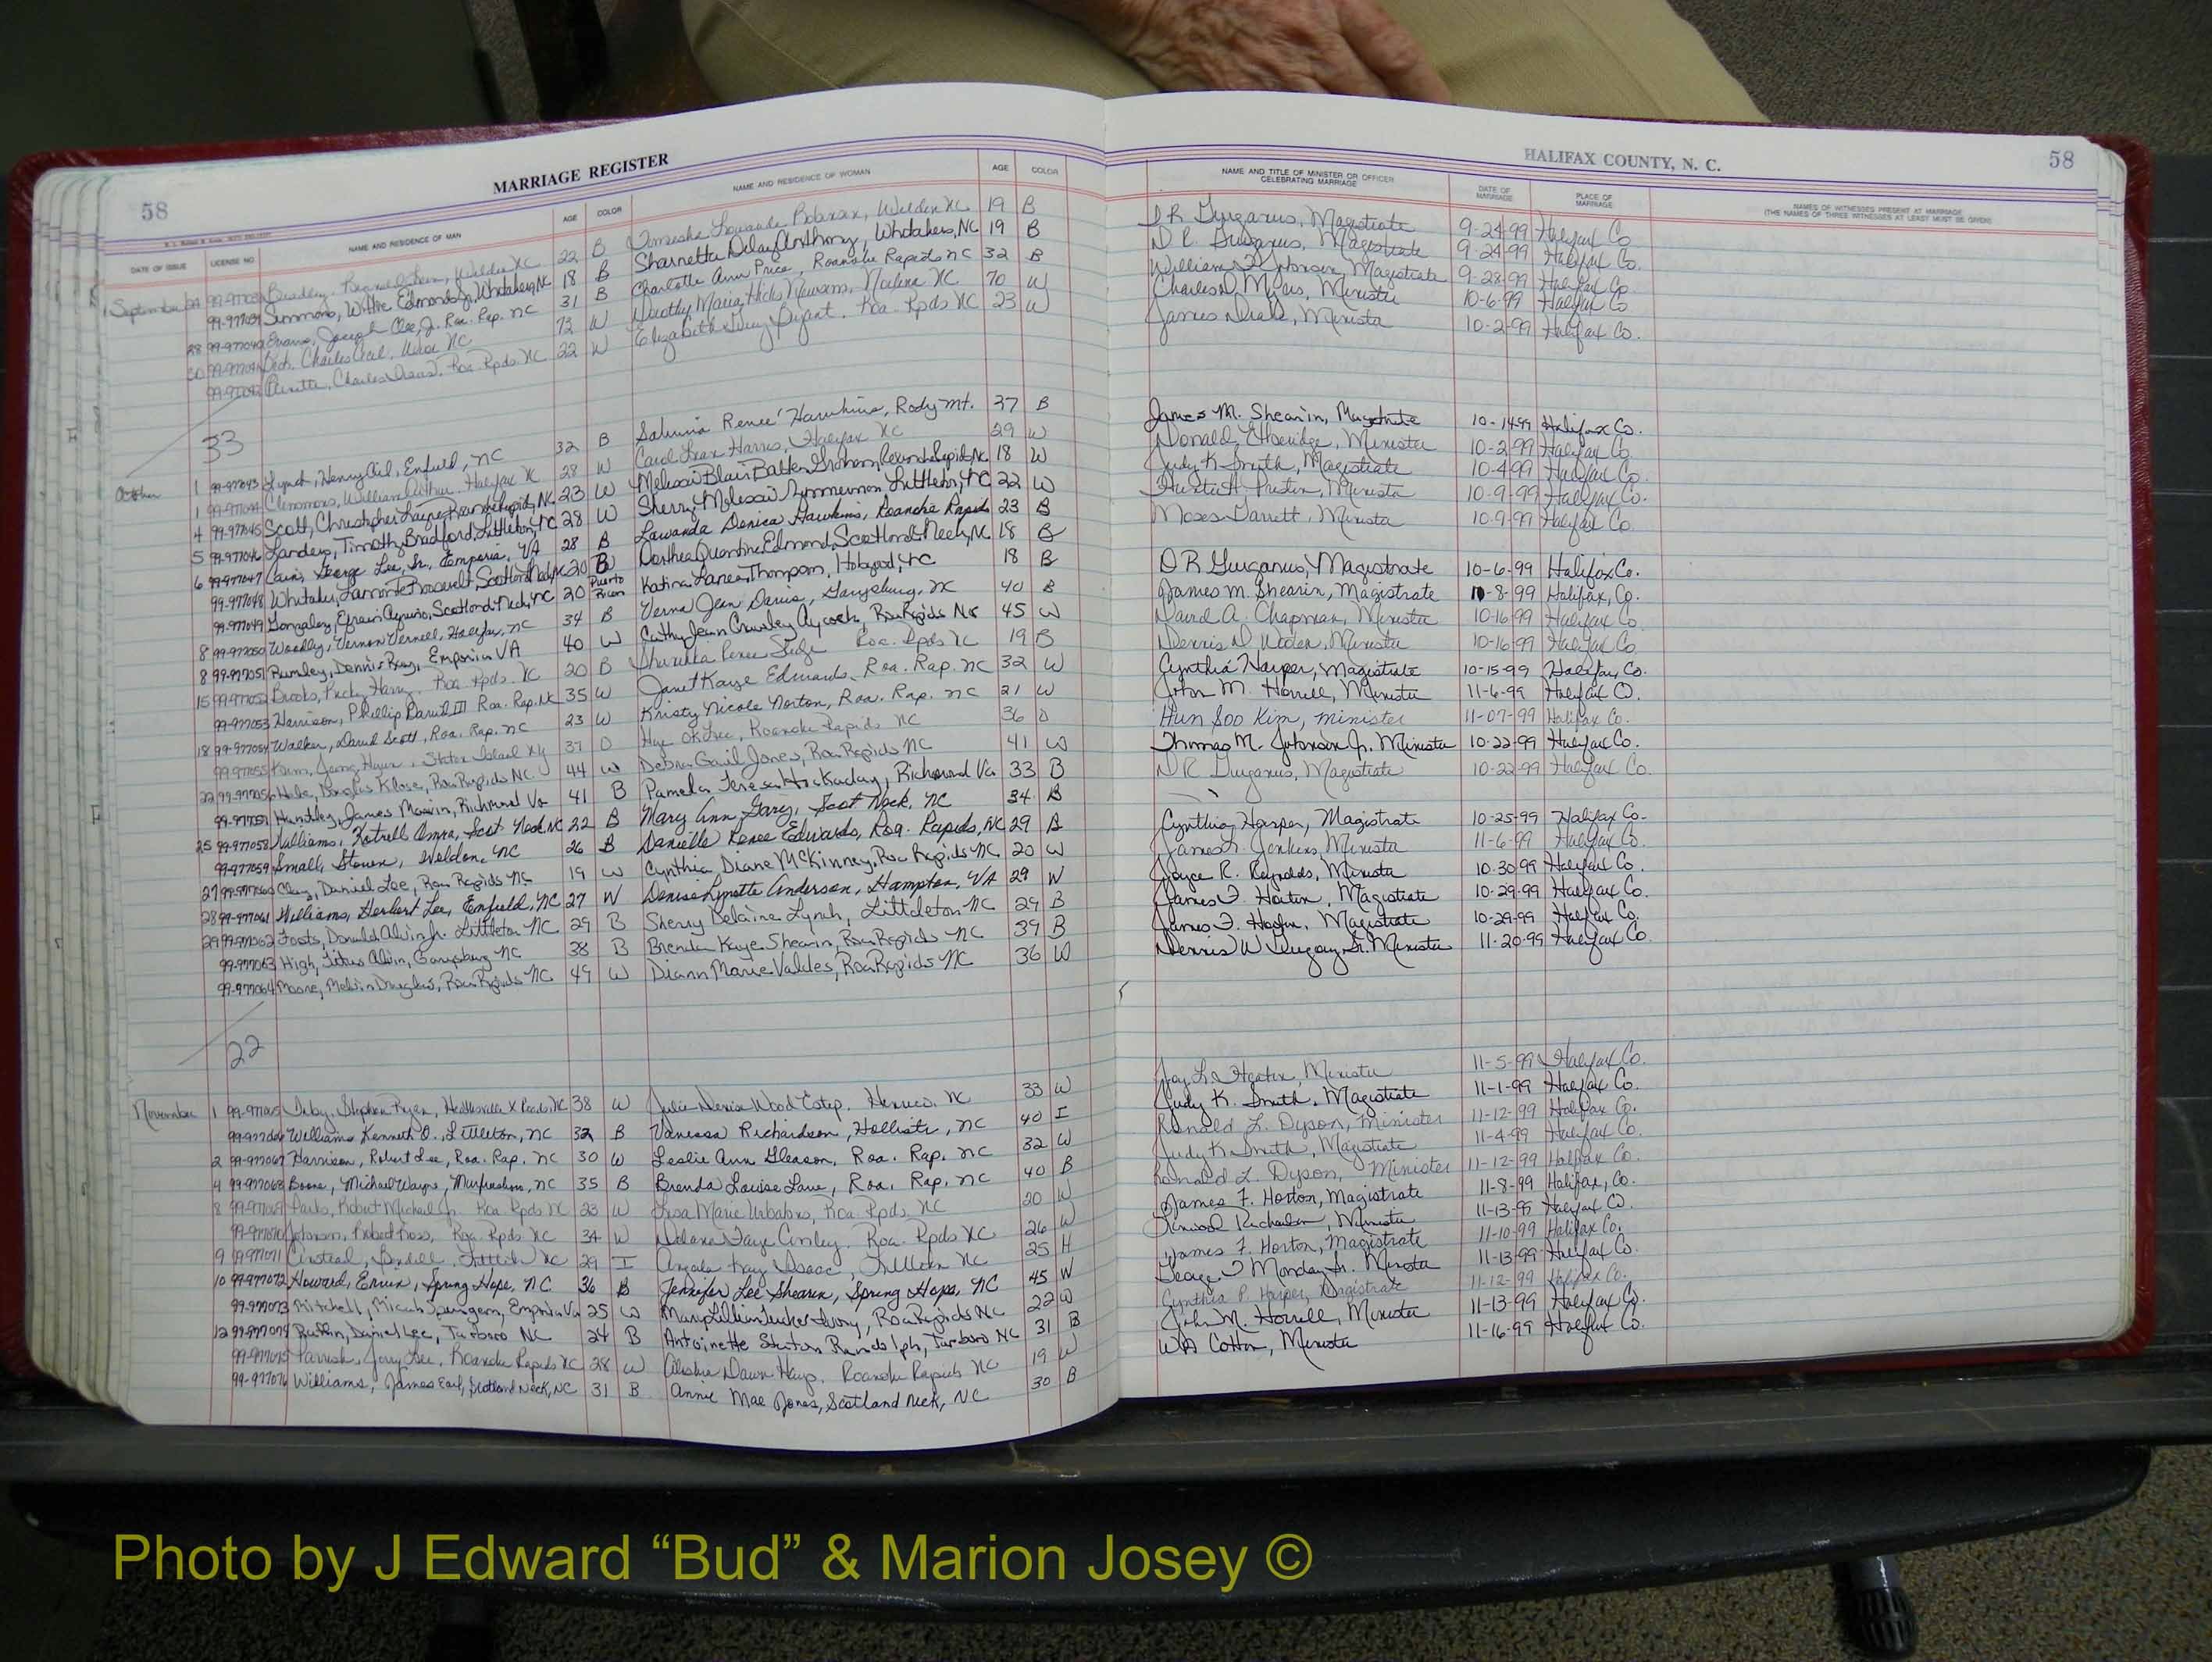 MARRIAGE REGISTER
HALIFAX COUNTY, N. C.
58
58
DATE OF ISSUE LICENSE NO NAME AND RESIDENCE OF MAN AGE COLOR NAME AND RESIDENCE OF WOMAN AGE COLOR
NAME AND TITLE OF MINISTER OR OFFICER CELEBRATING MARRIAGE DATE OF MARRIAGE PLACE OF MARRIAGE NAMES OF WITNESSES PRESENT AT MARRIAGE (THE NAMES OF THREE WITNESSES AT LEAST MUST BE GIVEN)
September 22 B Robinson, Weldon NC 19 B Magistrate 9-24-99 Halifax Co
Simmons, Willie Edmond Jr, Whitakers NC 18 B Sharnetta Delay Anthony, Whitakers, NC 19 B Magistrate 9-24-99 Halifax Co.
28 99-977040 Evans, Joseph Roa. Rap. NC 31 B Charlotte Ann Price, Roanoke Rapids NC 32 B William Johnson, Magistrate 9-28-99 Halifax Co
Charles Cecil 72 W Dorothy Maria Hicks Newsom NC 70 W Charles Minister 10-6-99 Halifax Co
Charles Roa Rpds NC 22 W Elizabeth Roa. Rpds NC 23 W James Drake, Minister 10-2-99 Halifax Co.
33
October 1 99-977043 Lynch, Henry Enfield, NC 32 B Sabrina Renee' Hawkins, Rocky Mt. 37 B James M. Shearin, Magistrate 10-14-99 Halifax Co.
1 Clemmons, William Arthur Halifax NC 28 W Carol Harris, Halifax NC 29 W Donald Etheridge, Minister 10-2-99 Halifax Co.
4 99-977045 Scott, Christopher Layne Roanoke Rapids, NC 23 W Melissa Blair Batten 18 W Judy K Smith, Magistrate 10-4-99 Halifax Co.
5 99-977046 Landers, Timothy Bradford, Littleton, NC 28 W Sherry Melissa Zimmerman Littleton, NC 22 W Minister 10-9-99 Halifax Co.
6 99-977047 Cain, George Lee, Jr., Emporia, VA 28 B Lawanda Denica Hawkins, Roanoke Rapids 23 B Moses Garrett, Minister 10-9-99 Halifax Co.
99-977048 Whitaker, Lamonte Roosevelt, Scotland Neck NC 20 B Dorthea Quantine Edmond, Scotland Neck, NC 18 B D R Gurganus, Magistrate 10-6-99 Halifax Co.
99-977049 Gonzalez, Efrain Scotland Neck, NC 20 Puerto Rican Katina Thompson, Hobgood, NC 18 B James M. Shearin, Magistrate 10-8-99 Halifax, Co.
8 99-977050 Woodley, Vernon Vernell, Halifax, NC 34 B Verna Jean Davis, Garysburg, NC 40 B David A. Chapman, Minister 10-16-99 Halifax Co
8 99-977051 Rumley, Dennis Ray, Emporia VA 40 W Cathy Jean Crawley Aycock, Roa Rapids NC 45 W Dennis D. Minister 10-16-99 Halifax Co
15 99-977052 Brooks, Ricky Harry Roa Rpds. NC 20 B Renee Roa. Rpds NC 19 B Cynthia Harper, Magistrate 10-15-99 Halifax, Co.
99-977053 Harrison, Phillip David III Roa. Rap. NC 35 W Janet Kaye Edwards, Roa. Rap. NC 32 W John M. Horrell, Minister 11-6-99 Halifax Co.
18 99-977054 Walker, David Scott, Roa. Rap. NC 23 W Kristy Nicole Norton, Roa. Rap. NC 21 W Hun Soo Kim, Minister 11-07-99 Halifax Co.
99-977055 Staten Island NY 37 O Roanoke Rapids NC 36 O Thomas M. Johnson Jr. Minister 10-22-99 Halifax Co.
22 99-977056 Hale, Douglas Roa Rapids NC 44 W Debra Gail Jones, Roa Rapids NC 41 W D R Gurganus, Magistrate 10-22-99 Halifax Co.
99-977057 Huntley, James Richmond Va 41 B Pamela Teresa Hockaday, Richmond Va 33 B
25 99-977058 Williams, Scot. Neck, NC 22 B Mary Ann Scot Neck, NC 34 B Cynthia Harper, Magistrate 10-25-99 Halifax Co.
99-977059 Small, Steven, Weldon, NC 26 B Danielle Renee Edwards, Roa. Rapids, NC 29 B James Jenkins, Minister 11-6-99 Halifax Co.
27 99-977060 Clay, Daniel Lee, Roa Rapids NC 19 W Cynthia Diane McKinney, Roa Rapids NC 20 W Joyce R. Reynolds, Minister 10-30-99 Halifax Co.
28 99-977061 Williams, Herbert Lee, Enfield, NC 27 W Denise Lynette Anderson, Hampton, VA 29 W James F. Horton, Magistrate 10-29-99 Halifax Co.
29 99-977062 Donald Alvin Jr. Littleton NC 29 B Sherry Delaine Lynch, Littleton NC 29 B James F. Horton, Magistrate 10-29-99 Halifax Co.
99-977063 High, Alvin, Garysburg NC 38 B Brenda Kaye Shearin, Roa Rapids NC 39 B Dennis W Sr. Minister 11-20-99 Halifax Co.
99-977064 Moore, Melvin Douglas, Roa Rapids NC 49 W Diann Marie Valdes, Roa Rapids NC 36 W
22
November 1 99-977065 Stephen NC 38 W Julie Denise Wood Estep, NC 33 W Minister 11-5-99 Halifax Co.
99-977066 Williams Kenneth O., Littleton, NC 32 B Vanessa Richardson, Hollister, NC 40 I Judy K. Smith, Magistrate 11-1-99 Halifax Co.
2 99-977067 Harrison, Robert Lee, Roa. Rap. NC 30 W Leslie Ann Gleason, Roa. Rap. NC 32 W Ronald L. Dyson, Minister 11-12-99 Halifax Co.
4 99-977068 Boone, Michael Wayne, Murfreesboro, NC 35 B Brenda Louise Lane, Roa. Rap. NC 40 B Judy K Smith, Magistrate 11-4-99 Halifax Co.
8 99-977069 Parks, Robert Michael Jr. Roa Rpds NC 23 W Lisa Marie Roa. Rpds. NC 20 W Ronald L. Dyson, Minister 11-12-99 Halifax Co.
99-977070 Johnson, Robert Ross, Roa. Rpds NC 34 W Faye Roa. Rpds NC 26 W James F. Horton, Magistrate 11-8-99 Halifax, Co.
9 99-977071 NC 29 I Angela Kay Isaac, NC 25 H Richardson, Minister 11-13-99 Halifax Co
10 99-977072 Howard, Spring Hope, NC 36 B Jennifer Lee Shearin, Spring Hope, NC 45 W James F. Horton, Magistrate 11-10-99 Halifax Co.
99-977073 Mitchell, Micah Spurgeon, Emporia Va 25 W Mary Lillian Tucker Ivory, Roa Rapids NC 22 W George F Monday Sr. Minister 11-13-99 Halifax Co.
12 99-977074 Ruffin, Daniel Lee, Tarboro NC 24 B Antoinette Randolph, Tarboro NC 31 B Cynthia P. Harper, Magistrate 11-12-99 Halifax Co.
99-977075 Parrish, Jerry Lee, Roanoke Rapids NC 28 W Dawn Hays, Roanoke Rapids NC 19 W John M. Horrell, Minister 11-13-99 Halifax Co.
99-977076 Williams, James Earl, Scotland Neck, NC 31 B Annie Mae Jones, Scotland Neck, NC 30 B WA Cotton, Minister 11-16-99 Halifax Co.
Photo by J Edward “Bud” & Marion Josey ©